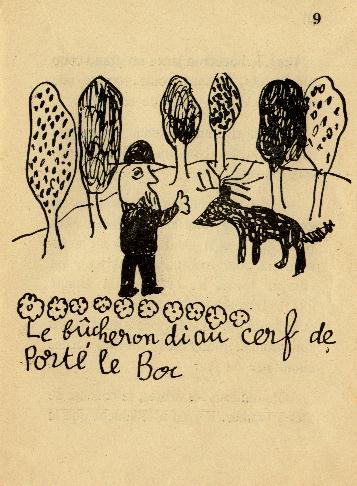 9
Le bûcheron di au cerf de
Porté le Boc